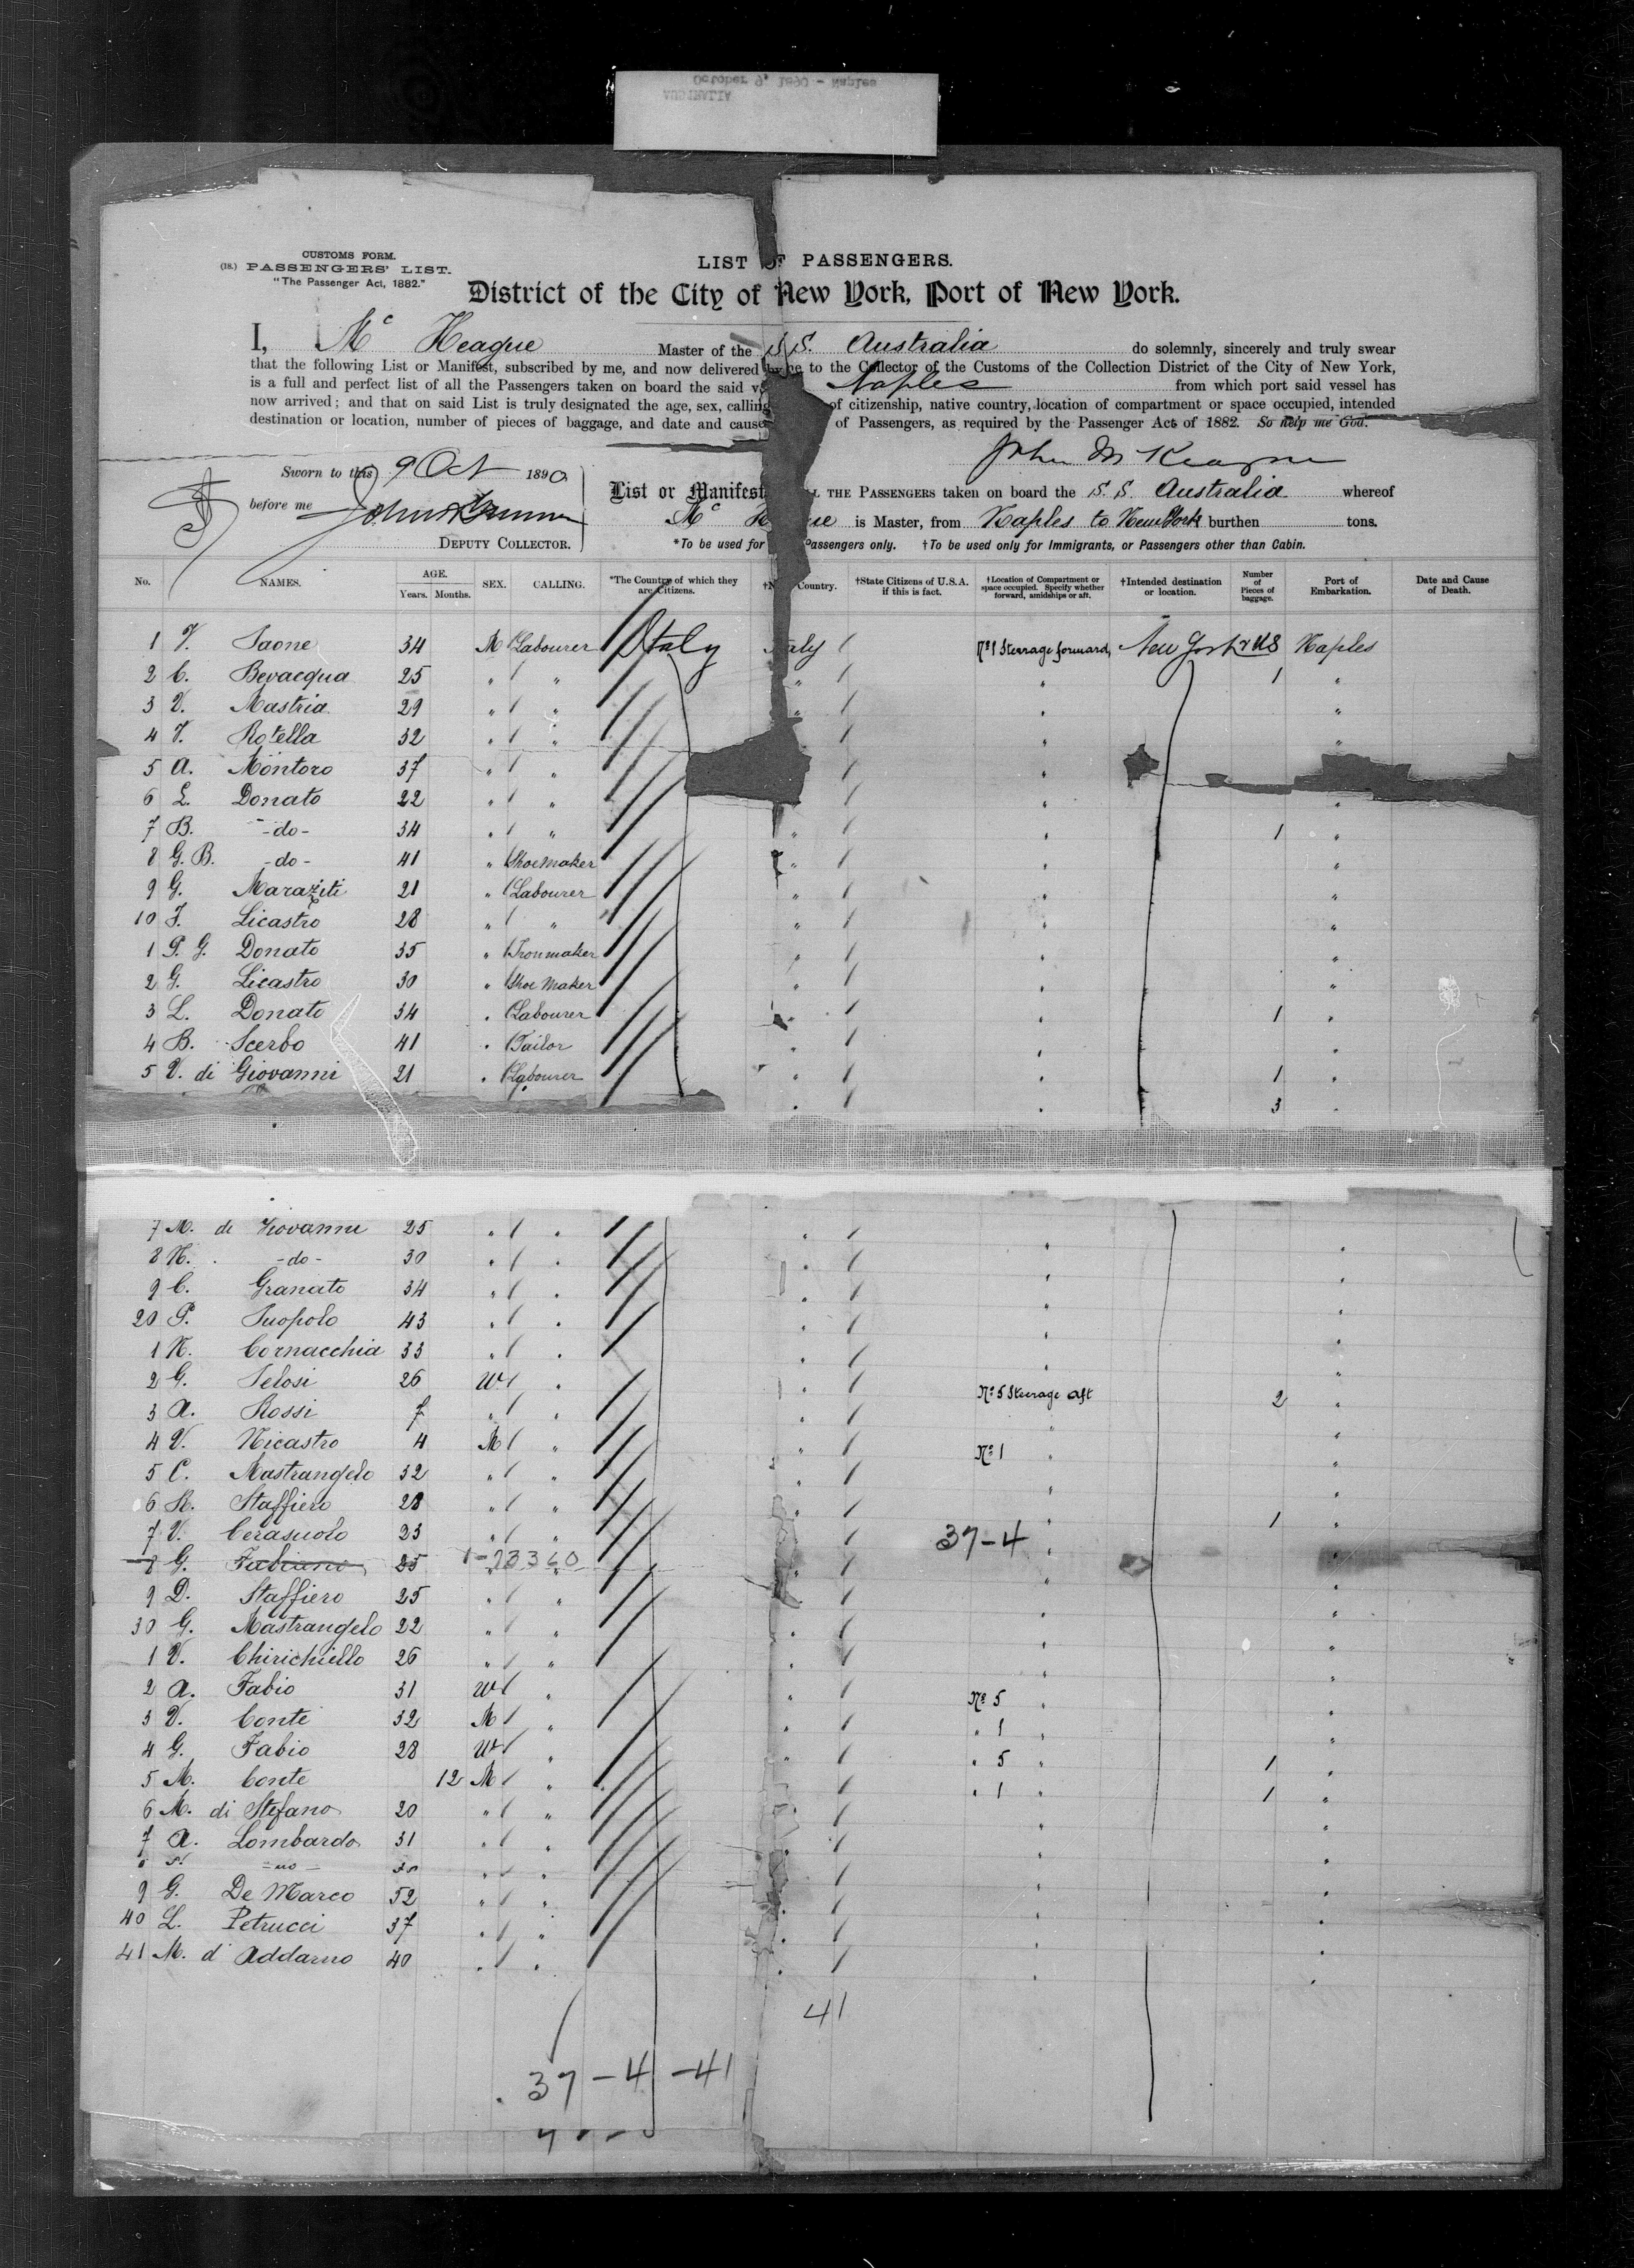 October 9, 1890 - Naples
AUSTRALIA
CUSTOMS FORM.
(18.) PASSENGERS' LIST.
"The Passenger Act, 1882."
LIST OF PASSENGERS.
District of the City of New York, Port of New York.
I, Mc Keague Master of the S.S. Australia do solemnly, sincerely and truly swear
that the following List or Manifest, subscribed by me, and now delivered by me to the Collector of the Customs of the Collection District of the City of New York,
is a full and perfect list of all the Passengers taken on board the said Naples from which port said vessel has
now arrived; and that on said List is truly designated the age, sex, calling of citizenship, native country, location of compartment or space occupied, intended
destination or location, number of pieces of baggage, and date and cause of Passengers, as required by the Passenger Act of 1882. So help me God.
John Mc Keague
Sworn to this 9 Oct 1890
before me
DEPUTY COLLECTOR.
List or Manifest ALL THE PASSENGERS taken on board the S.S. Australia whereof
Mc is Master, from Naples to New York burthen tons.
*To be used for Passengers only. †To be used only for Immigrants, or Passengers other than Cabin.
No. NAMES. AGE. Years. Months. SEX. CALLING. *The Country of which they are Citizens. Country. †State Citizens of U.S.A. if this is fact. †Location of Compartment or space occupied. Specify whether forward, amidships or aft. †Intended destination or location. Number of Pieces of baggage. Port of Embarkation. Date and Cause of Death.
1 V. Saone 34 M Labourer Italy Italy No 1 Steerage forward New York & US Naples
2 C. Bevacqua 25 " " " " 1 "
3 V. Mastria 29 " " " " "
4 V. Rotella 32 " " " "
5 A. Montoro 37 " " "
6 L. Donato 22 " " " "
7 B. -do- 34 " " " " 1 "
8 G. B. -do- 41 " Shoemaker " " "
9 G. Maraziti 21 " Labourer " " "
10 F. Licastro 28 " " " " "
1 P. G. Donato 35 " Ironmaker " " "
2 G. Licastro 30 " Shoe Maker " " "
3 L. Donato 34 " Labourer " " 1 "
4 B. Scerbo 41 " Tailor " " "
5 V. di Giovanni 21 " Labourer " " 1 "
" " 3 "
7 M. di Giovanni 25 " " " " "
8 N. -do- 30 " " " " "
9 C. Granato 34 " " " " "
20 P. Suopolo 43 " " " " "
1 N. Cornacchia 33 " " " " "
2 G. Selosi 26 W " " No 5 Steerage aft 2 "
3 A. Rossi 7 " " " " "
4 V. Nicastro 4 M " " No 1 " "
5 C. Mastrangelo 32 " " " " "
6 R. Staffiero 28 " " " " 1 "
7 V. Cerasuolo 23 " " 37-4 " "
8 G. Fabiano 25 1-23360 " " "
9 D. Staffiero 25 " " " "
30 G. Mastrangelo 22 " " " " "
1 V. Chirichiello 26 " " " " "
2 A. Fabio 31 W " " No 5 " "
3 V. Conte 32 M " " " 1 " "
4 G. Fabio 28 W " " " 5 " 1 "
5 M. Conte 12 M " " 1 " 1 "
6 M. di Stefano 20 " " " "
7 A. Lombardo 31 " " " " "
-do- " " " "
9 G. De Marco 52 " " " " "
40 L. Petrucci 37 " " " " "
41 M. d' Addarno 40 " " " " "
41
37-4-41